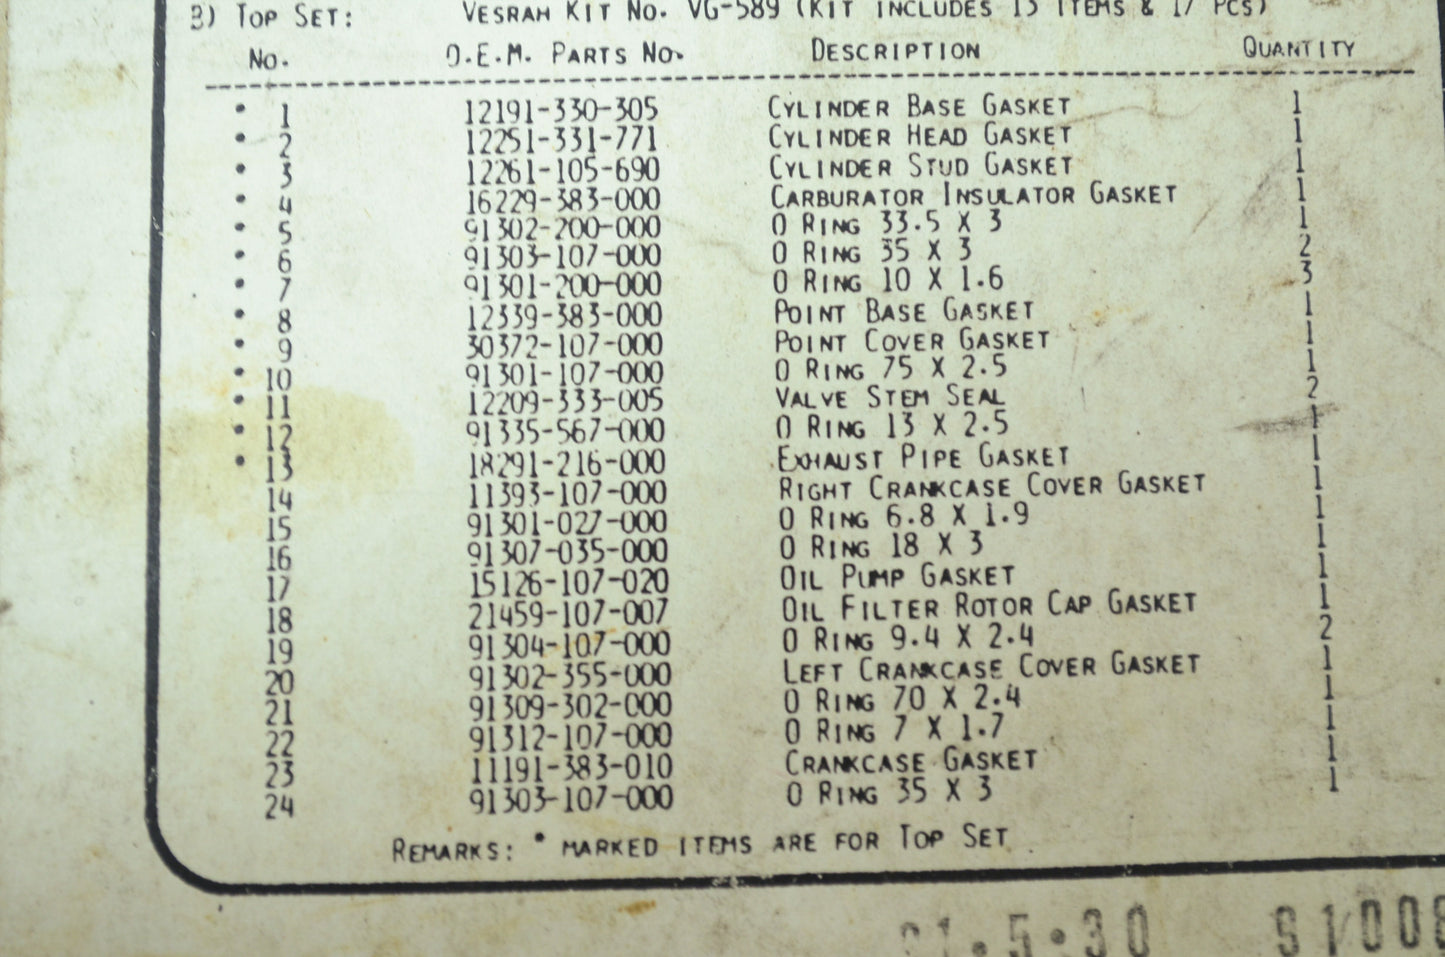 B) TOP SET: VESRAH KIT NO. VG-589 (KIT INCLUDES 13 ITEMS & 17 PCS)
NO. O.E.M. PARTS NO. DESCRIPTION QUANTITY
• 1 12191-330-305 CYLINDER BASE GASKET 1
• 2 12251-331-771 CYLINDER HEAD GASKET 1
• 3 12261-105-690 CYLINDER STUD GASKET 1
• 4 16229-383-000 CARBURATOR INSULATOR GASKET 1
• 5 91302-200-000 O RING 33.5 X 3 1
• 6 91303-107-000 O RING 35 X 3 2
• 7 91301-200-000 O RING 10 X 1.6 3
• 8 12339-383-000 POINT BASE GASKET 1
• 9 30372-107-000 POINT COVER GASKET 1
• 10 91301-107-000 O RING 75 X 2.5 1
• 11 12209-333-005 VALVE STEM SEAL 2
• 12 91335-567-000 O RING 13 X 2.5 1
• 13 18291-216-000 EXHAUST PIPE GASKET 1
14 11393-107-000 RIGHT CRANKCASE COVER GASKET 1
15 91301-027-000 O RING 6.8 X 1.9 1
16 91307-035-000 O RING 18 X 3 1
17 15126-107-020 OIL PUMP GASKET 1
18 21459-107-007 OIL FILTER ROTOR CAP GASKET 1
19 91304-107-000 O RING 9.4 X 2.4 2
20 91302-355-000 LEFT CRANKCASE COVER GASKET 1
21 91309-302-000 O RING 70 X 2.4 1
22 91312-107-000 O RING 7 X 1.7 1
23 11191-383-010 CRANKCASE GASKET 1
24 91303-107-000 O RING 35 X 3 1
REMARKS: • MARKED ITEMS ARE FOR TOP SET